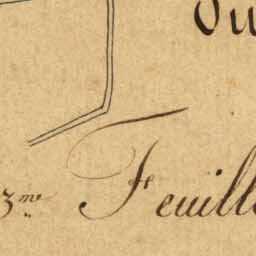 du
3me Feuille